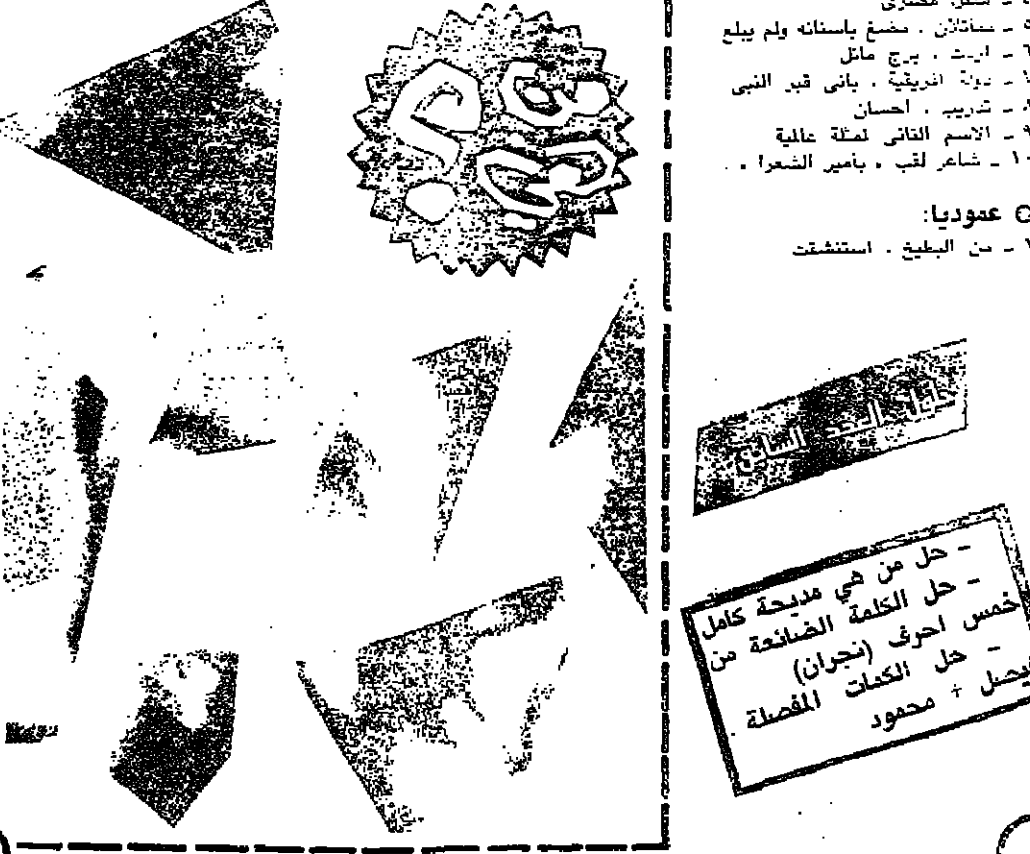 مضغ باسنانه ولم يبلع
برج مائل
افريقية . بانى قبر النبى
ـ تدريب . احسان
ـ الاسم الثانى لممثلة عالمية
١٠ ـ شاعر لقب ، بامير الشعرا ، .
عموديا:
ـ من البطيخ . استنشقت
من هي
حليل العدد السابق
- حل من هي مديحة كامل
- حل الكلمة الضائعة من
خمس احرف (نجران)
- حل الكلمات المفصلة
فيصل + محمود